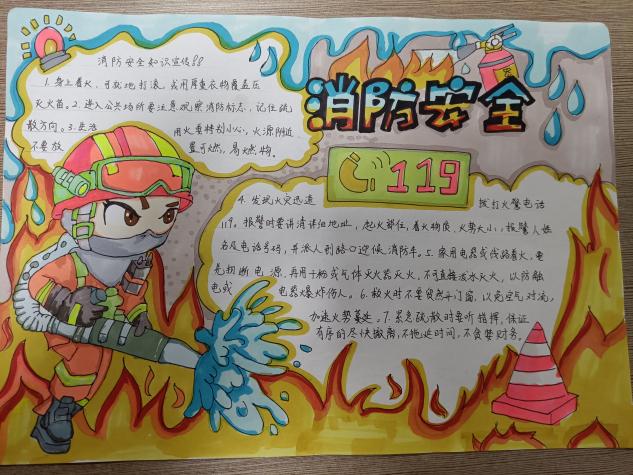 消防安全
消防安全知识宣传
1.身上着火，可就地打滚，或用厚重衣物覆盖压
灭火苗。2.进入公共场所要注意观察消防标志，记住疏
散方向。3.生活 用火要特别小心，火源附近
不要放 置可燃，易燃物。
119
4.发现火灾迅速 拨打火警电话
119。报警时要讲清详细地址，起火部位，着火物质，火势大小，报警人姓
名及电话号码，并派人到路口迎候消防车。5.家用电器或线路着火，要
先切断电源，再用干粉或气体灭火器灭火，不可直接泼水灭火，以防触
电或 电器爆炸伤人。6.救火时不要贸然开门窗，以免空气对流，
加速火势蔓延。7.紧急疏散时要听指挥，保证
有序的尽快撤离，不拖延时间，不贪恋财务。